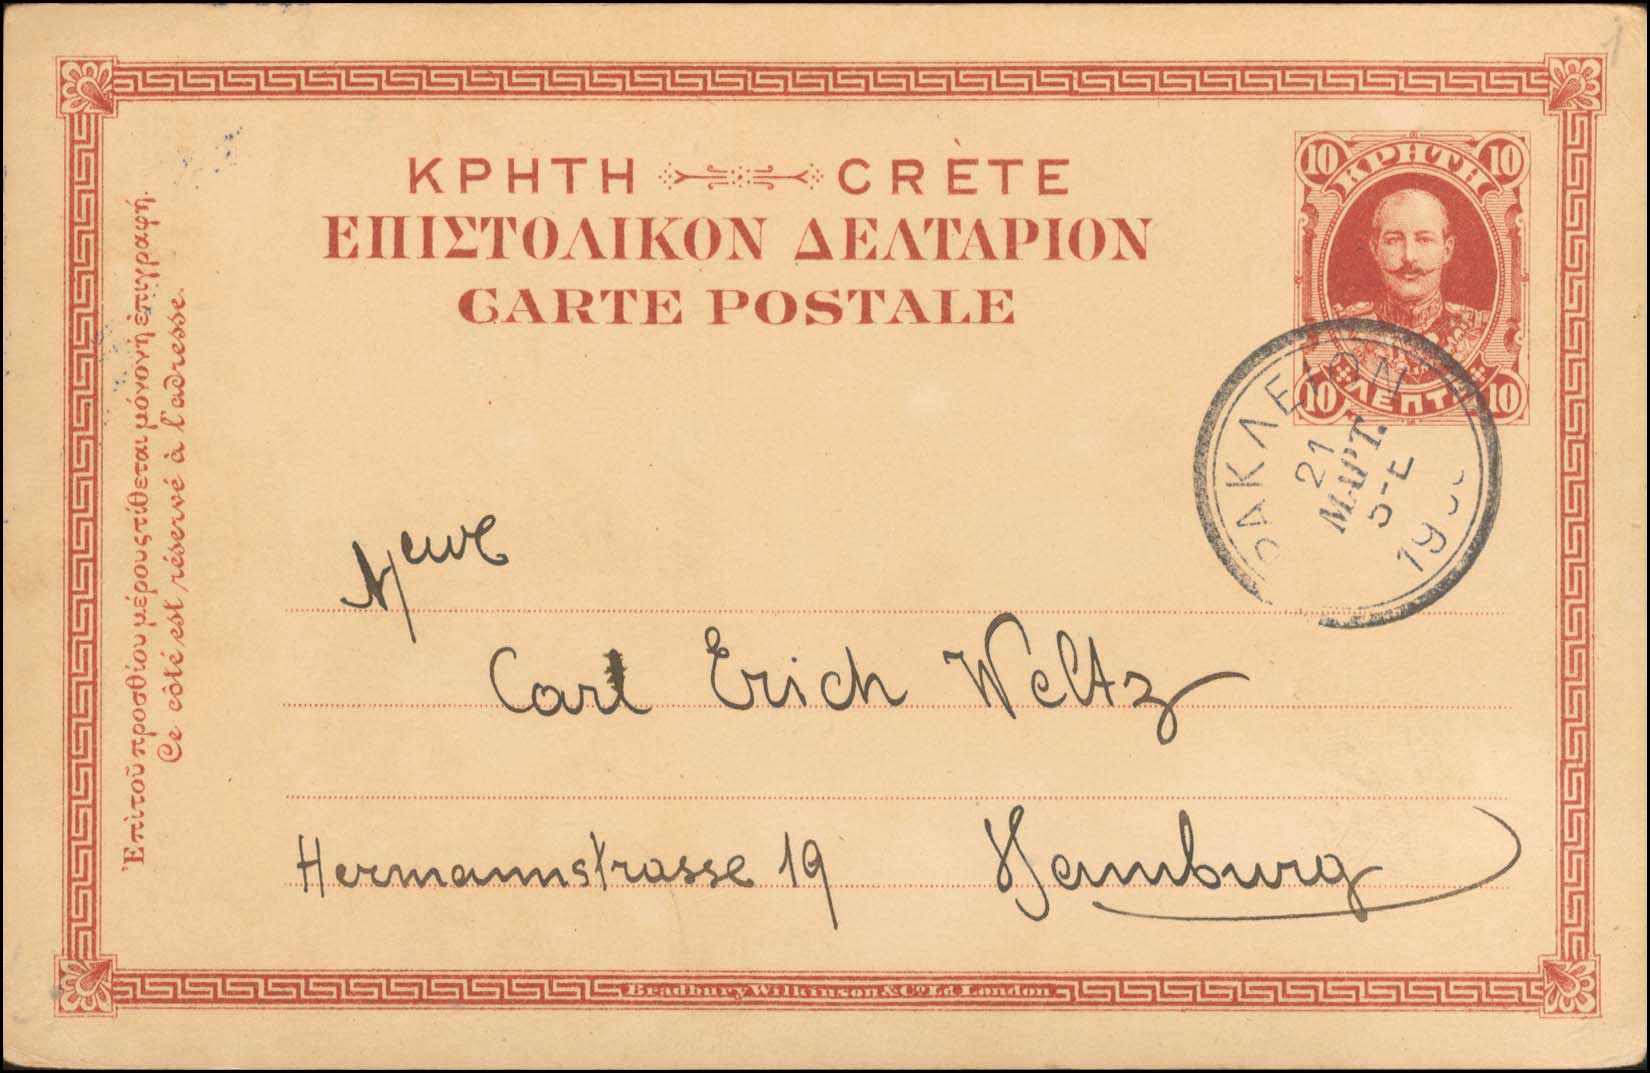 ΚΡΗΤΗ CRÈTE
ΕΠΙΣΤΟΛΙΚΟΝ ΔΕΛΤΑΡΙΟΝ
CARTE POSTALE
10 ΚΡΗΤΗ 10
10 ΛΕΠΤΑ 10
ΡΑΚΛΕΙΟΝ
21
ΜΑΡΤ.
5-Ε
Ἐπὶ τοῦ προσθίου μέρους τίθεται μόνον ἡ ἐπιγραφή.
Ce côté est réservé à l'adresse.
Carl Erich Weltz
Hermannstrasse 19 Hamburg
Bradbury Wilkinson & Co Ld London